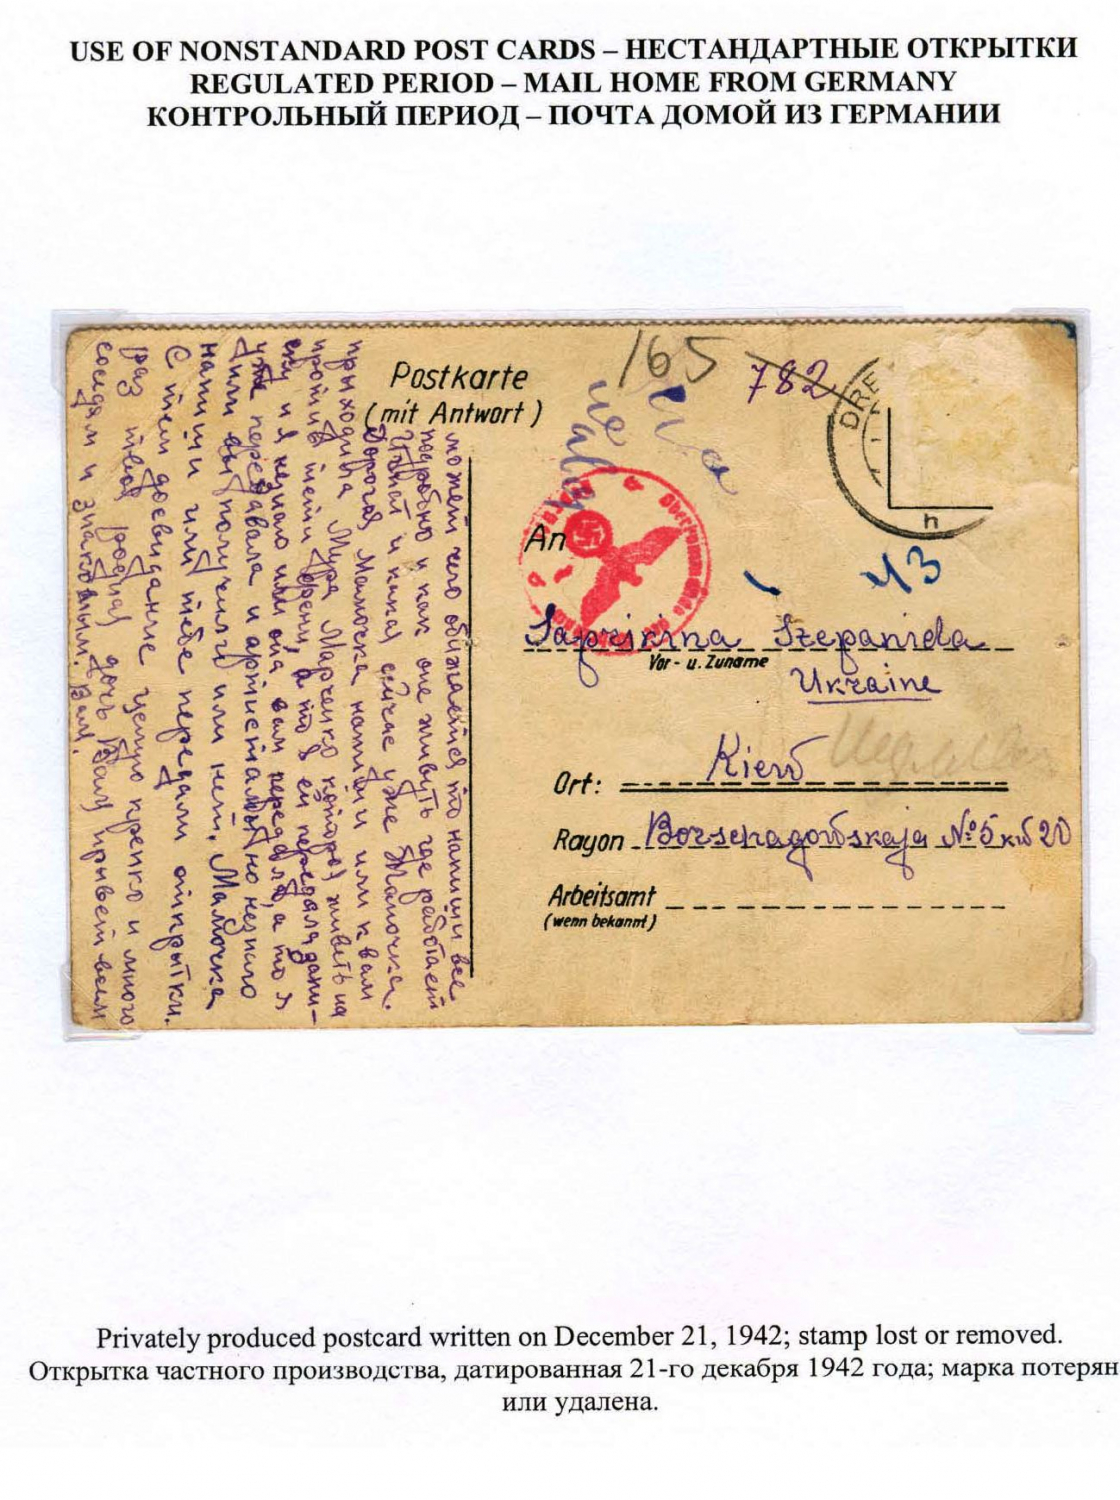 USE OF NONSTANDARD POST CARDS – НЕСТАНДАРТНЫЕ ОТКРЫТКИ
REGULATED PERIOD – MAIL HOME FROM GERMANY
КОНТРОЛЬНЫЙ ПЕРИОД – ПОЧТА ДОМОЙ ИЗ ГЕРМАНИИ
Postkarte
(mit Antwort)
165
782
DRE
h
An
43
Saprikina Szepanida
Vor- u. Zuname
Ukraine
Ort: Kiew
Rayon Borschagowskaja № 5 кв 20
Arbeitsamt
(wenn bekannt)
может чего обижается то напиши все
подробно и как они живут где работает
Игнат и какая сейчас уже Тамочка.
Дорогая Мамочка напиши или к вам
прыходила Мура Марченко которая живет на
против тети Френи, а то я ей передала
ку и я незнаю или она вам передала, а то я
уже передавала и
или вы получили или нет. Мамочка
напиши или тебе передали открытки.
С тем досвидание целую крепко и много
раз твоя родная дочь Валя привет всем
соседям и знакомым. Валя.
Privately produced postcard written on December 21, 1942; stamp lost or removed.
Открытка частного производства, датированная 21-го декабря 1942 года; марка потерян
или удалена.